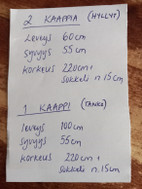 2 KAAPPIA (HYLLYT)
Leveys 60cm
Syvyys 55cm
korkeus 220cm +
Sokkeli n.15cm
1 KAAPPI (TANKO)
leveys 100cm
syvyys 55cm
korkeus 220cm +
Sokkeli n.15cm